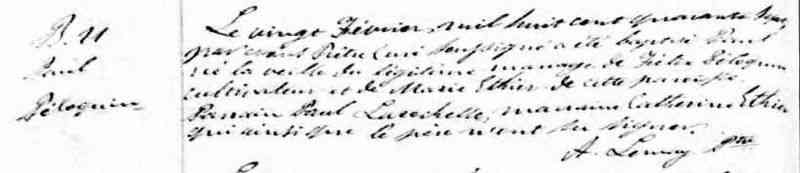 B. 11
Paul
Péloquin
Le vingt Février, mil huit cent quarante
par nous Prêtre Curé soussigné a été baptisé Paul
né la veille du légitime mariage de Péloquin
cultivateur et de Marie Ethier de cette paroisse.
Parrain Paul Larochelle, marraine Catherine Ethier
qui ainsi que le père n'ont su signer.
A. Lemay Ptre